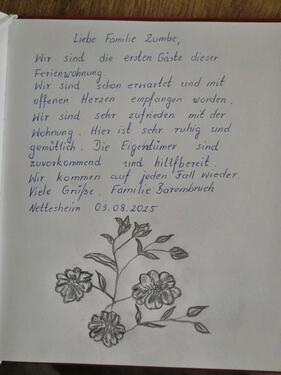 Liebe Familie Zumbe,
Wir sind die ersten Gäste dieser
Ferienwohnung.
Wir sind schon erwartet und mit
offenen Herzen empfangen worden.
Wir sind sehr zufrieden mit der
Wohnung. Hier ist sehr ruhig und
gemütlich. Die Eigentümer sind
zuvorkommend und hillfbereit.
Wir kommen auf jeden Fall wieder.
Viele Grüße. Familie Barembruch
Nettesheim 03.08.2025